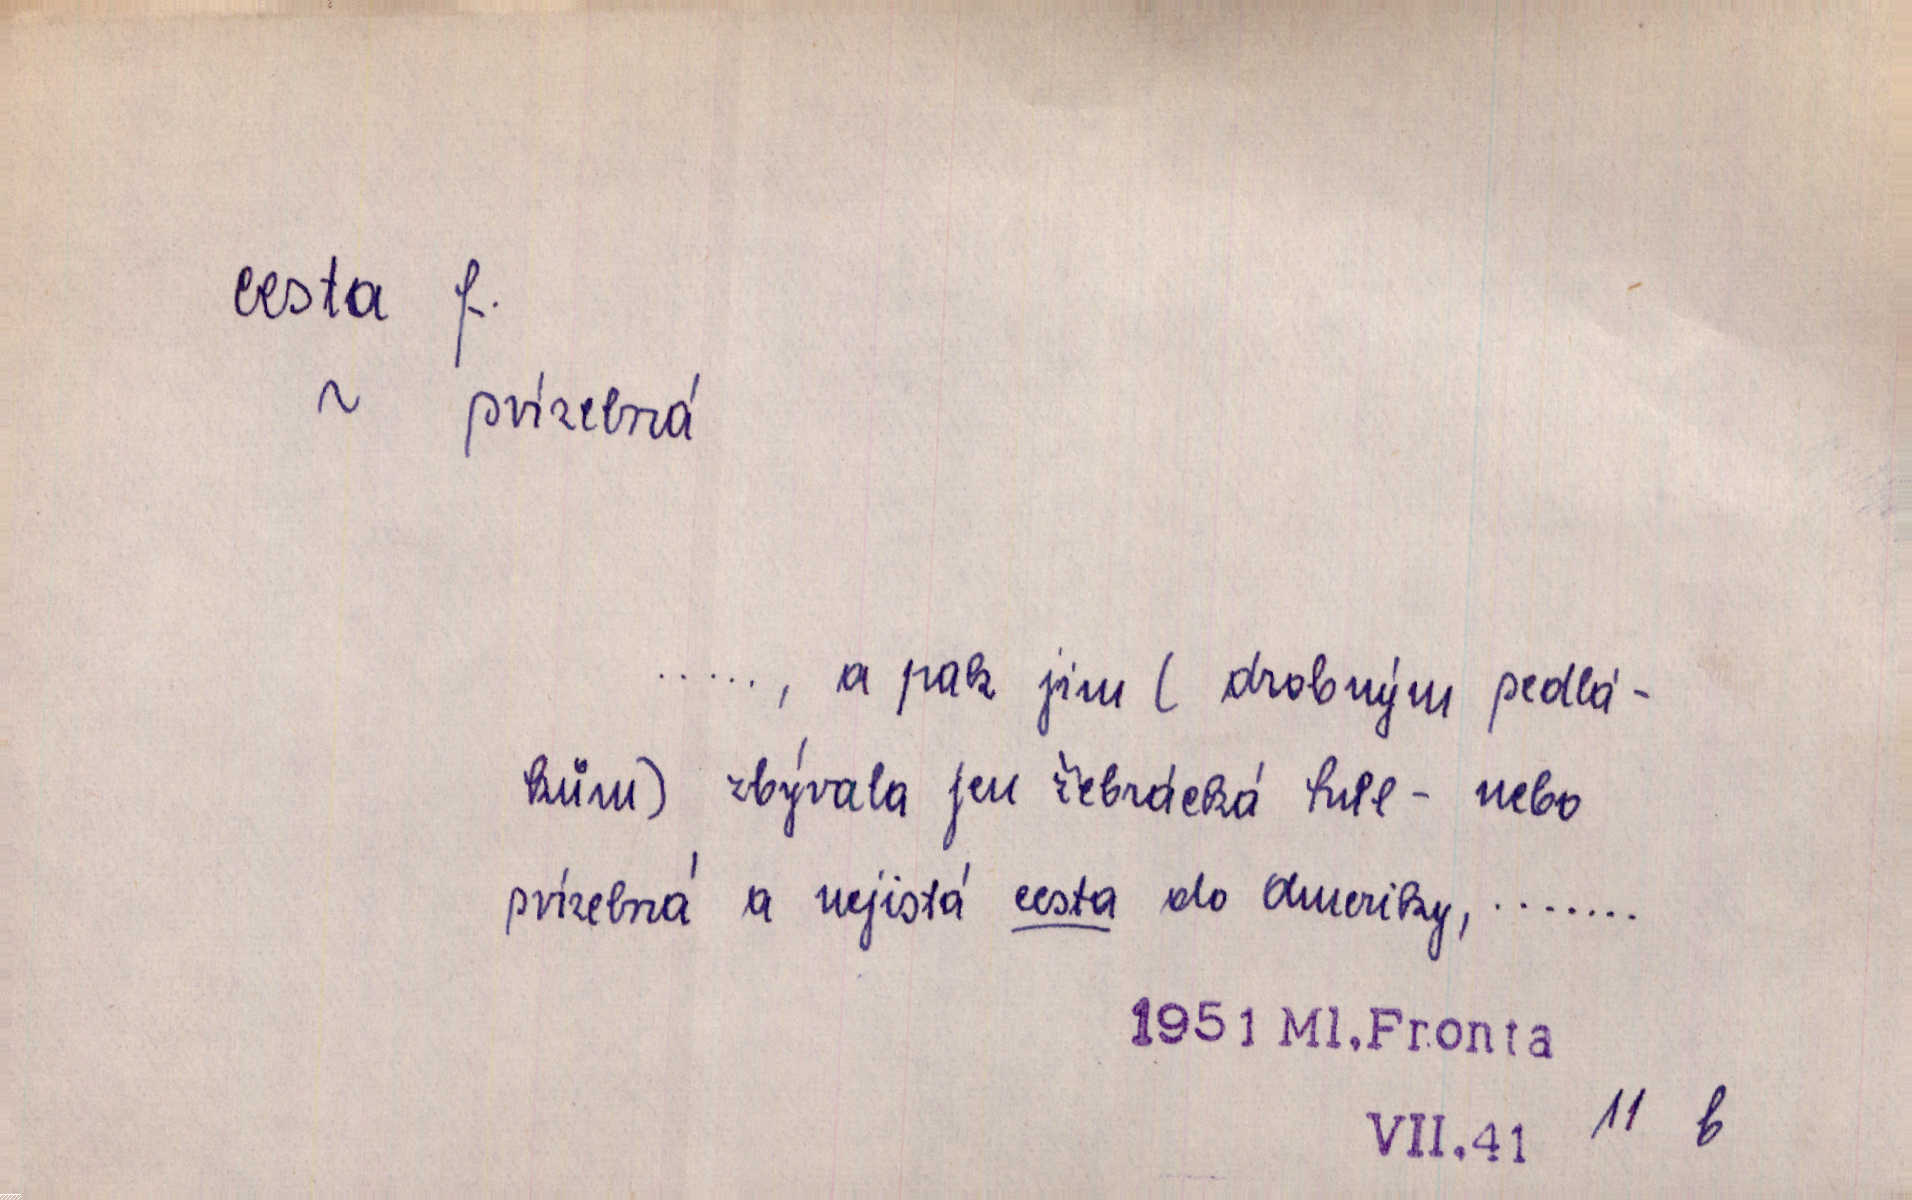 cesta f.
~ svízelná
....., a pak jim ( drobným sedlá-
kům) zbývala jen žebrácká hůl - nebo
svízelná a nejistá cesta do Ameriky, .......
1951 Ml.Fronta
VII.41 11 b